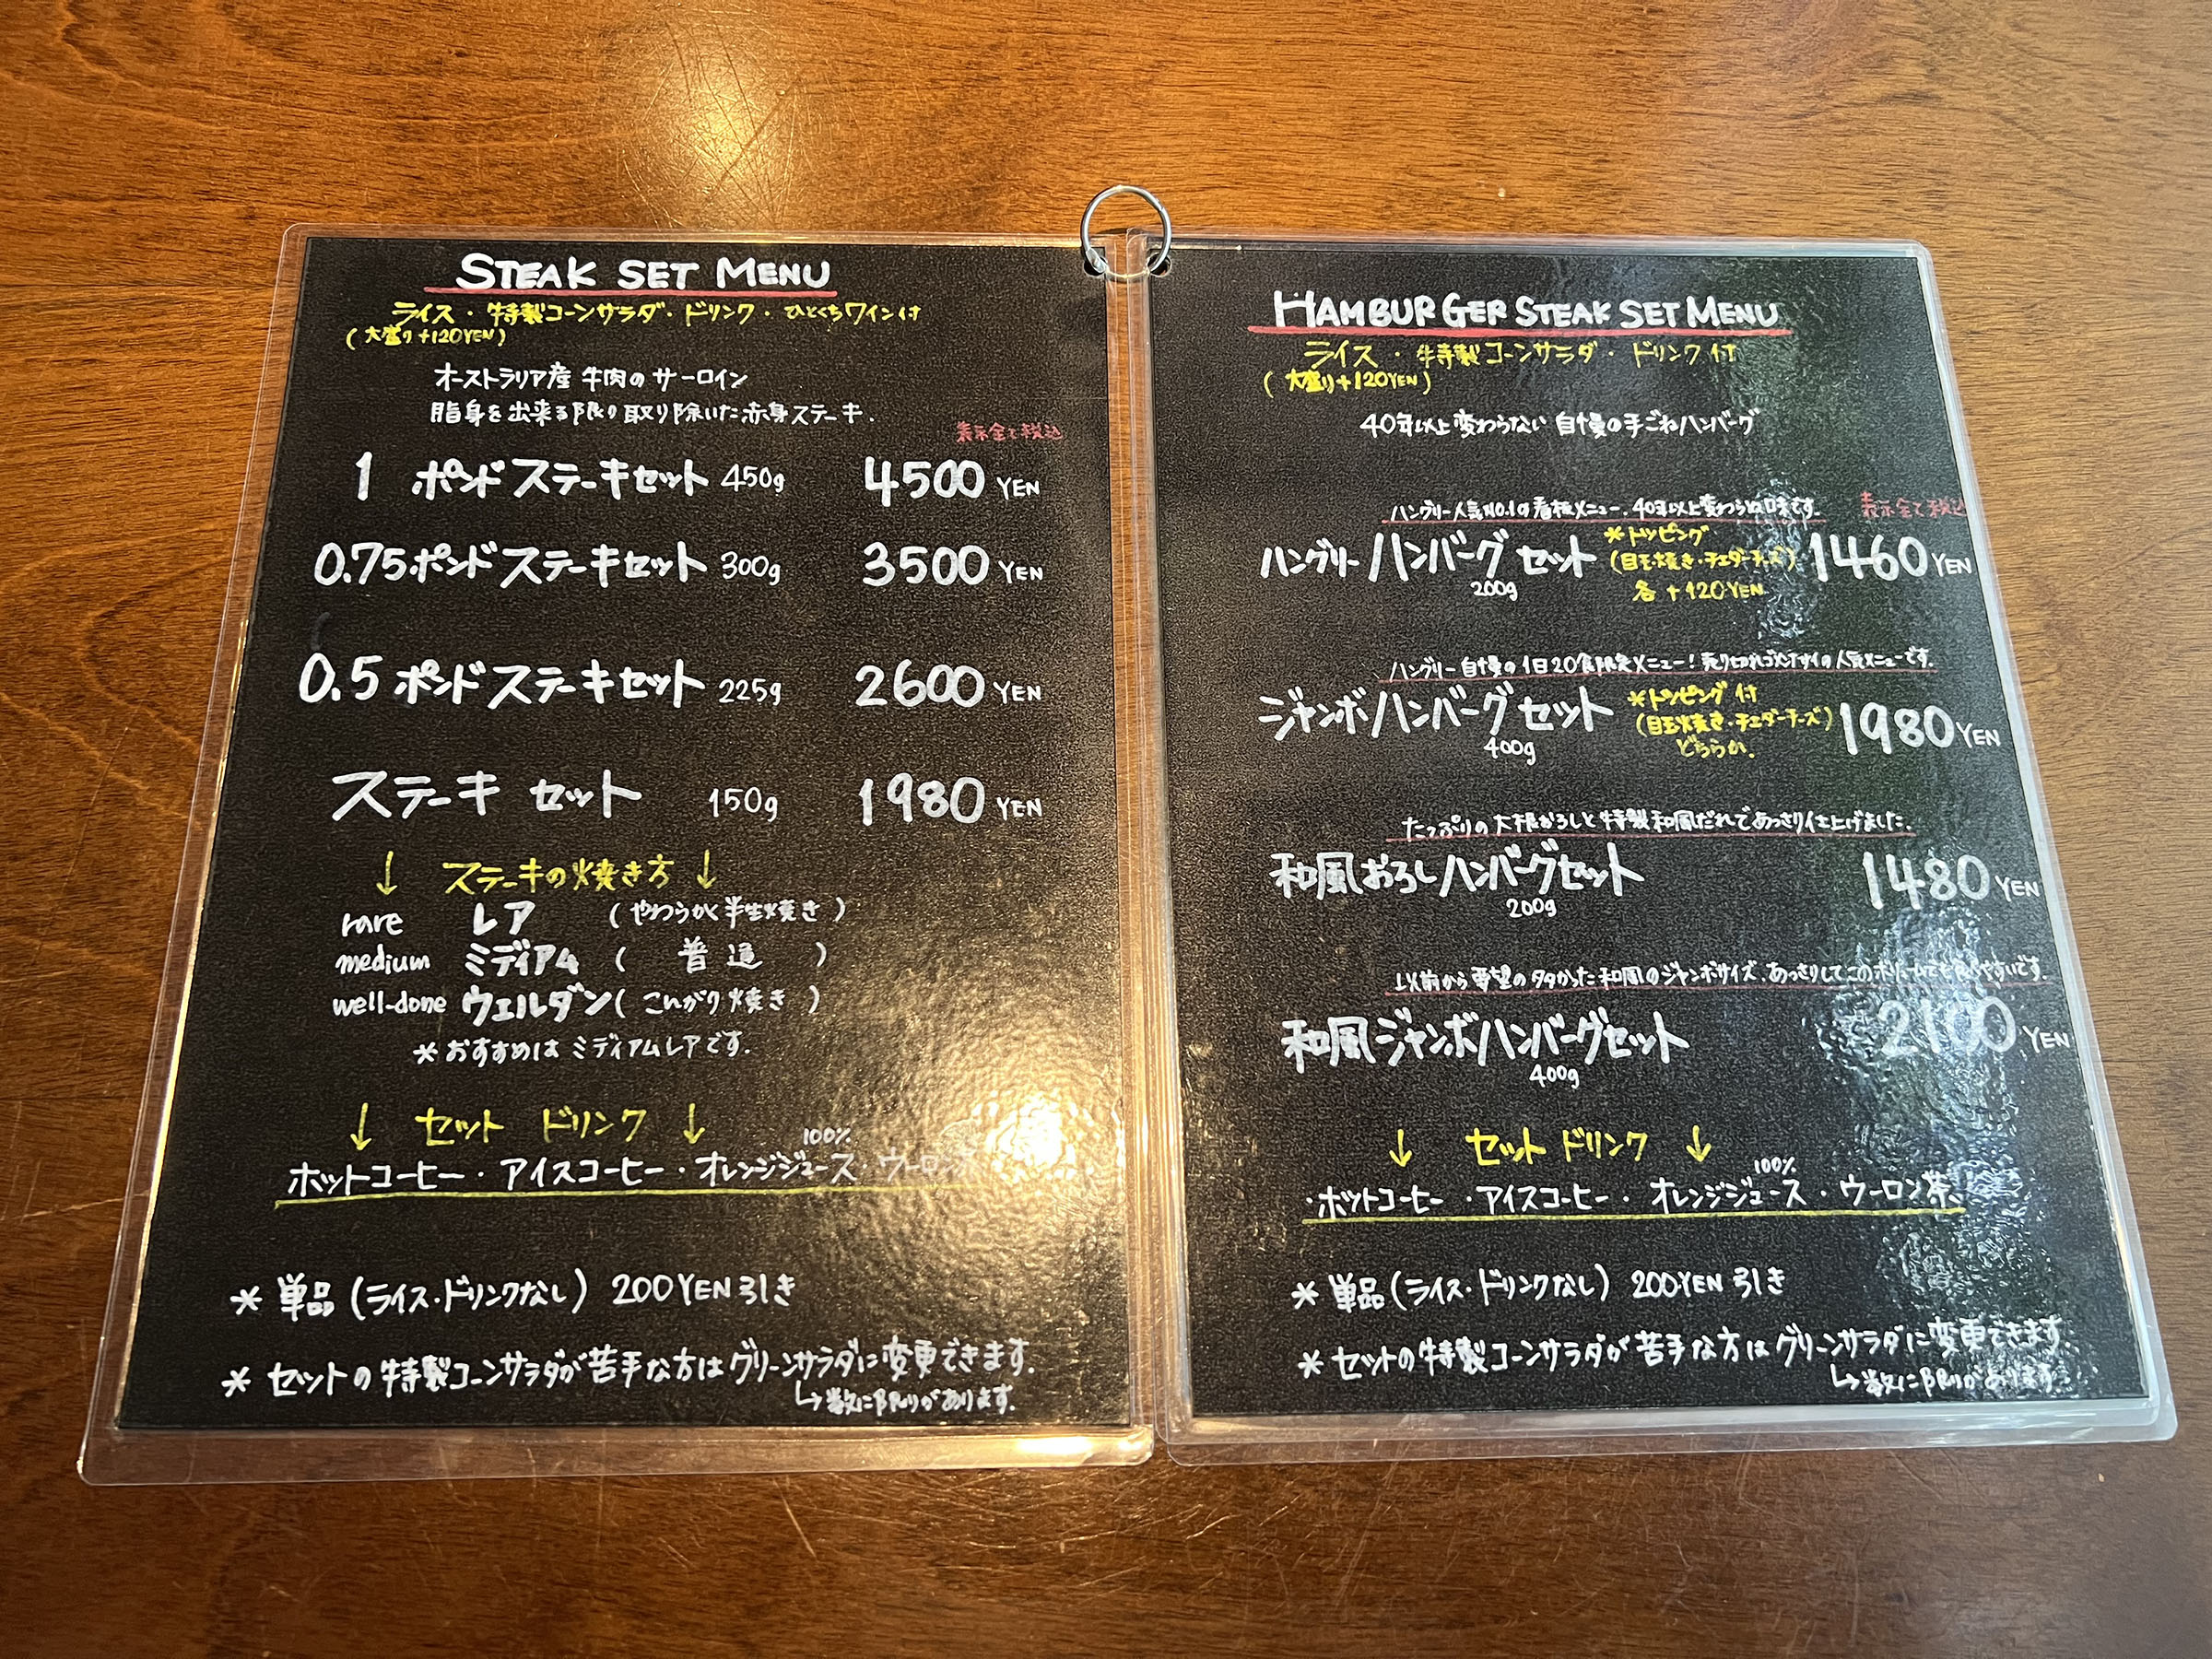 STEAK SET MENU
ライス・特製コーンサラダ・ドリンク・ひとくちワイン付
(大盛り+120YEN)
オーストラリア産 牛肉の サーロイン
脂身を出来る限り取り除いた赤身ステーキ.
表示全て税込
1 ポンドステーキセット 450g 4500 YEN
0.75ポンドステーキセット 300g 3500 YEN
0.5ポンドステーキセット 225g 2600 YEN
ステーキ セット 150g 1980 YEN
↓ ステーキの焼き方 ↓
rare レア (やわらかく半生焼き)
medium ミディアム (普通)
well-done ウェルダン(こんがり焼き)
*おすすめは ミディアムレアです.
↓ セット ドリンク ↓
100%
ホットコーヒー・アイスコーヒー・オレンジジュース・ウーロン茶
* 単品(ライス・ドリンクなし) 200YEN引き
* セットの特製コーンサラダが苦手な方はグリーンサラダに変更できます.
↳数に限りがあります.
HAMBURGER STEAK SET MENU
ライス・特製コーンサラダ・ドリンク付
(大盛り+120YEN)
40年以上変わらない自慢の手ごねハンバーグ
ハングリー人気NO.1の看板メニュー.40年以上変わらぬ味です. 表示全て税込
ハングリーハンバーグ セット *トッピング 1460 YEN
200g (目玉焼き・チェダーチーズ)
各+120YEN
ハングリー自慢の1日20食限定メニュー!売り切れゴメンナサイの人気メニューです.
ジャンボハンバーグセット *トッピング付 1980 YEN
400g (目玉焼き・チェダーチーズ)
どちらか.
たっぷりの大根おろしと特製和風だれであっさり仕上げました.
和風おろしハンバーグセット 1480 YEN
200g
以前から要望の多かった和風のジャンボサイズ.あっさりしてこのボリュームでも食べやすいです.
和風ジャンボハンバーグセット 2100 YEN
400g
↓ セットドリンク ↓
100%
・ホットコーヒー・アイスコーヒー・オレンジジュース・ウーロン茶
* 単品(ライス・ドリンクなし) 200YEN引き
* セットの特製コーンサラダが苦手な方はグリーンサラダに変更できます.
↳数に限りがあります.